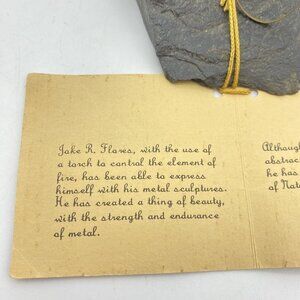 Jake R. Flores, with the use of
a torch to control the element of
fire, has been able to express
himself with his metal sculptures.
He has created a thing of beauty,
with the strength and endurance
of metal.
Although
abstrac
he has
of Nat